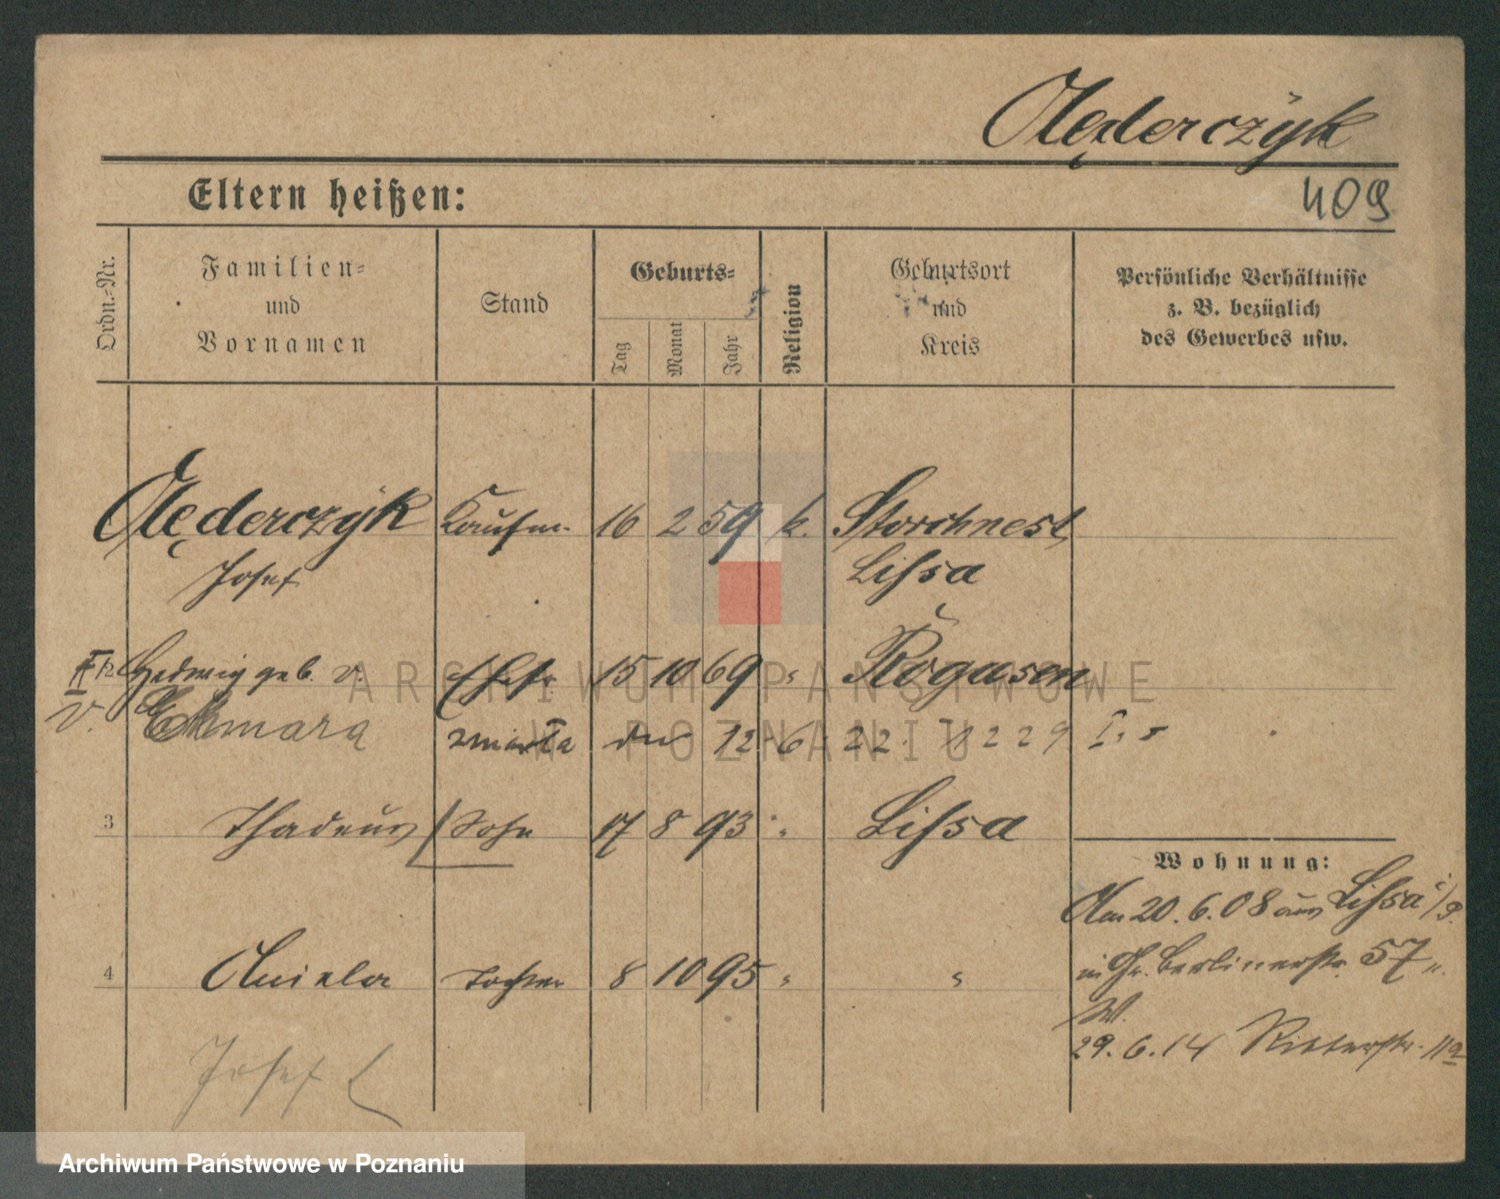 Olęderczyk
Eltern heißen:
409
Ordn.-Nr.
Familien-
und
Vornamen
Stand
Geburts-
Tag
Monat
Jahr
Religion
Geburtsort
und
Kreis
Persönliche Verhältnisse
z. B. bezüglich
des Gewerbes usw.
Olęderczyk Kaufm. 16 2 59 k. Storchnest,
Josef Lissa
Hedwig geb. v. Ehefr. 15 10 69 " Rogasen
zmarła 12 6 22
3 Thadeus Sohn 17 8 93 " Lissa
4 Aniela Tochter 8 10 95 " "
Josef
Wohnung:
Am 20.6.08 aus Lissa i/P.
in Gr. Berlinerstr. 57
29.6.14 Ritterstr. 11a
ARCHIWUM PAŃSTWOWE
W POZNANIU
Archiwum Państwowe w Poznaniu